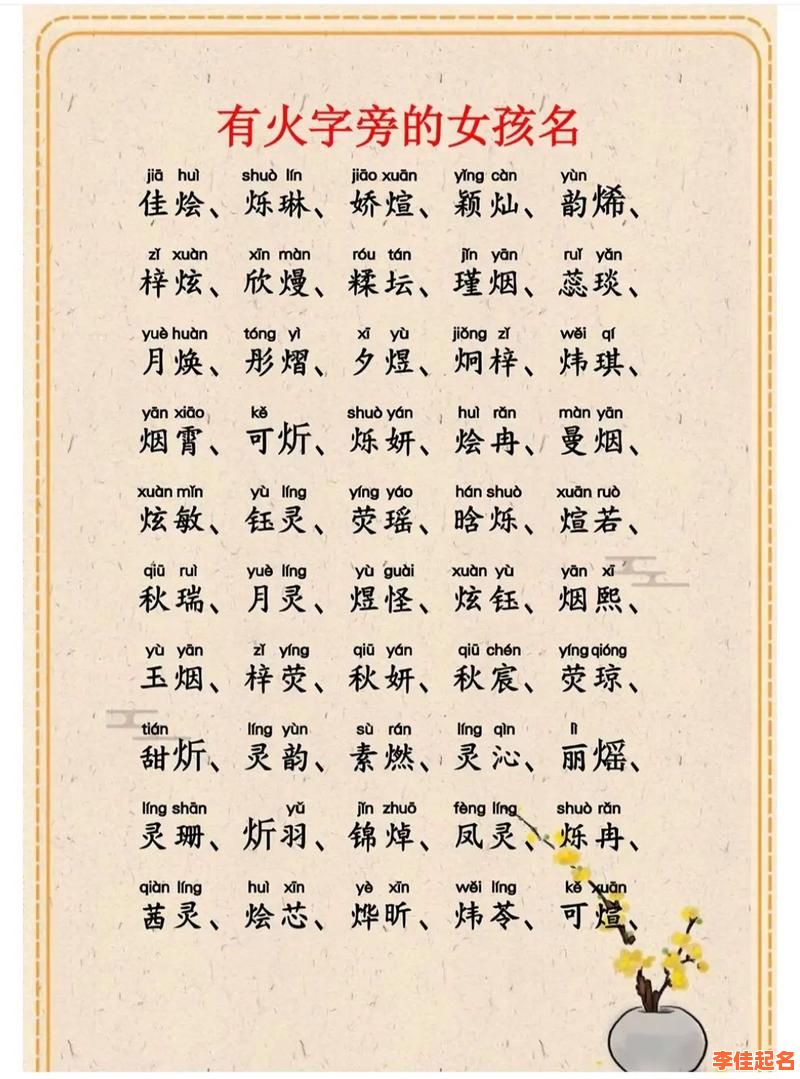 有火字旁的女孩名
jiā huì shuò lín jiāo xuān yǐng càn yùn
佳烩、烁琳、娇煊、颖灿、韵烯、
zǐ xuàn xīn màn róu tán jǐn yān ruǐ yǎn
梓炫、欣熳、糅坛、瑾烟、蕊琰、
yuè huàn tóng yì xī yù jiǒng zǐ wěi qí
月焕、彤熠、夕煜、炯梓、炜琪、
yān xiāo kě shuò yán huì rǎn màn yān
烟霄、可炘、烁妍、烩冉、曼烟、
xuàn mǐn yù líng yíng yáo hán shuò xuān ruò
炫敏、钰灵、荧瑶、晗烁、煊若、
qiū ruì yuè líng yù guài xuàn yù yān xī
秋瑞、月灵、煜怪、炫钰、烟熙、
yù yān zǐ yíng qiū yán qiū chén yíng qióng
玉烟、梓荧、秋妍、秋宸、荧琼、
tián líng yùn sù rán líng qìn lì
甜炘、灵韵、素燃、灵沁、丽熎、
líng shān yǔ jǐn zhuō fèng líng shuò rǎn
灵珊、炘羽、锦焯、凤灵、烁冉、
qiàn líng huì xīn yè xīn wěi líng kě xuān
茜灵、烩芯、烨昕、炜苓、可煊、
李佳起名